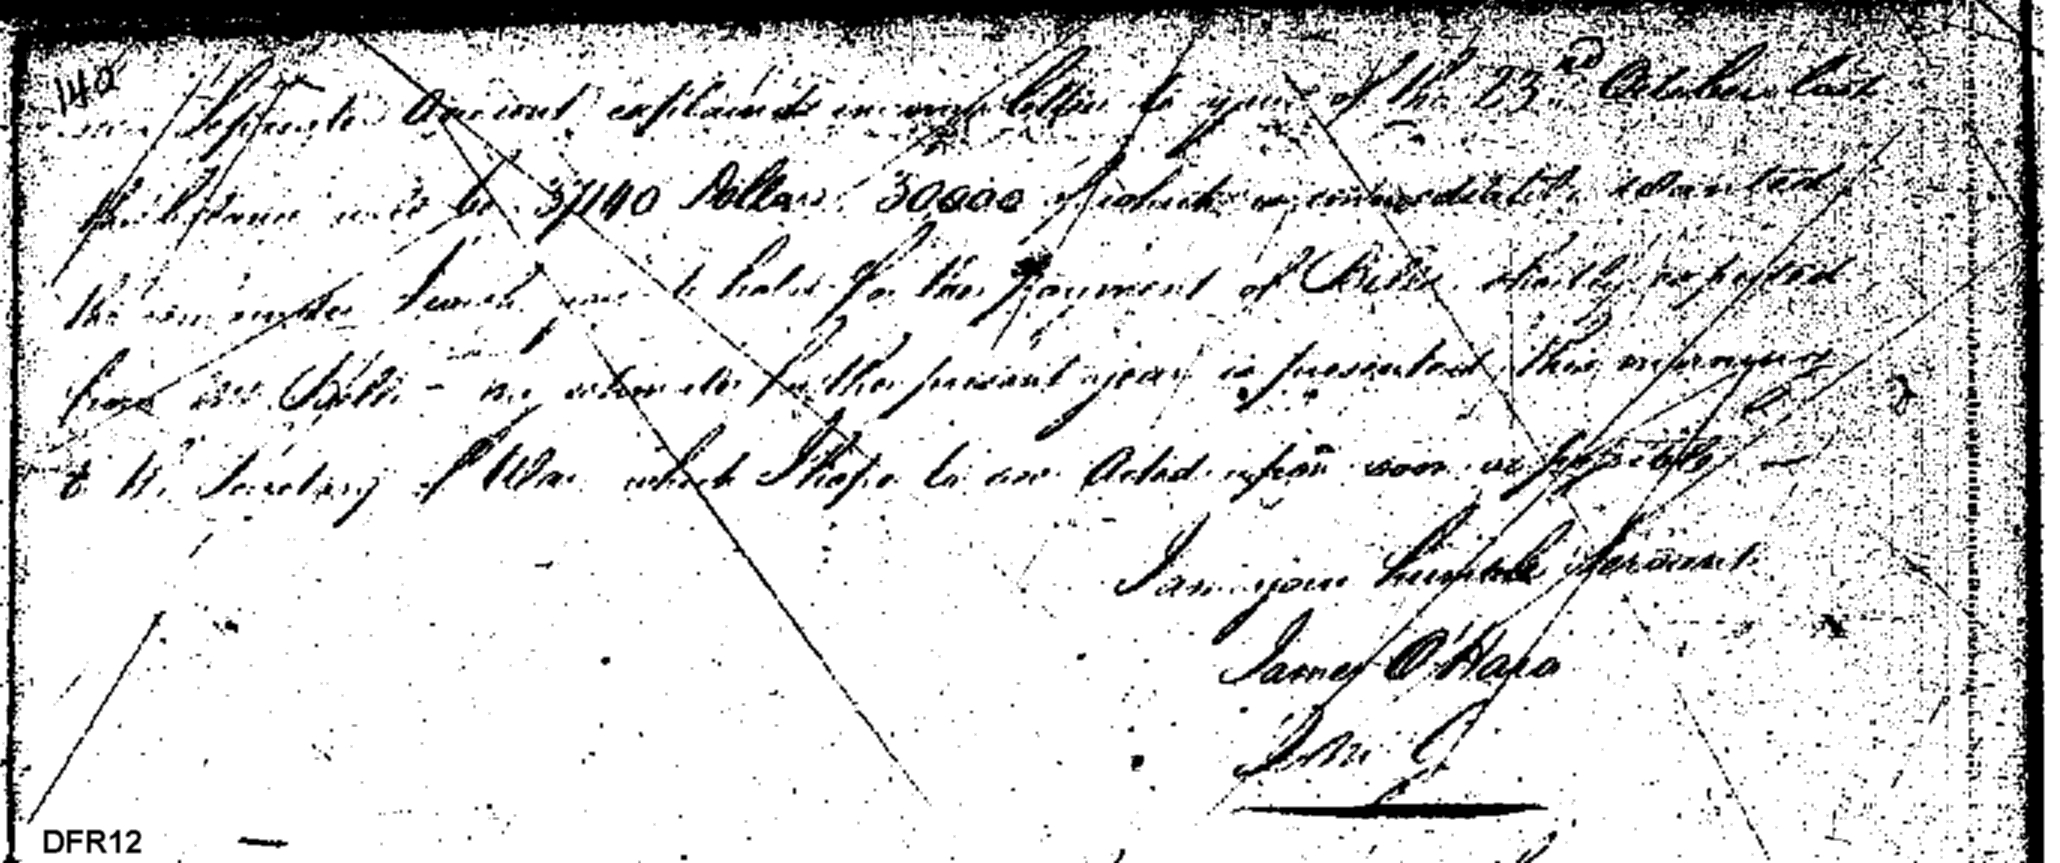 140
Separate Account explained in my letter to you of the 23rd October last
the balance will be 37140 Dollars 30000 of which is immediately wanted
the remainder I wish to hold for the payment of Bills shortly expected
from - an estimate for the present year is presented this morning
to the Secretary of War which I hope to see Acted upon soon as possible —
I am your humble Servant
James O'Hara
DFR12